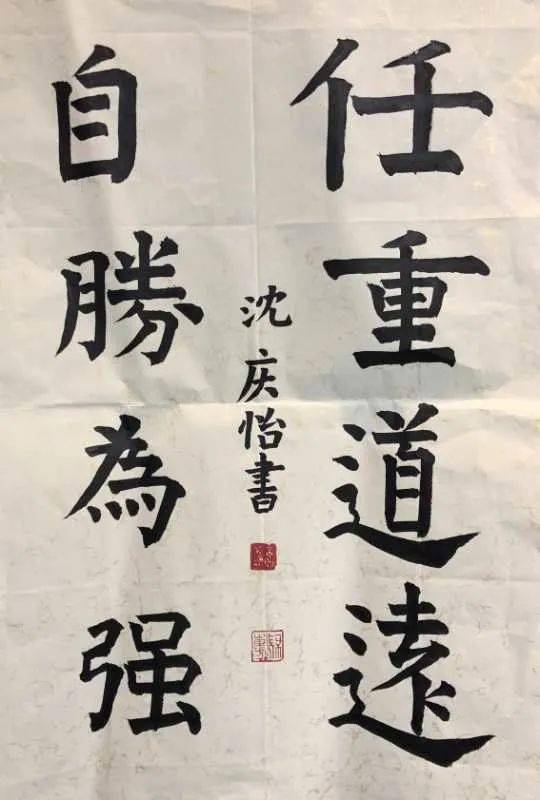 任重道遠
自勝為强
沈庆怡書